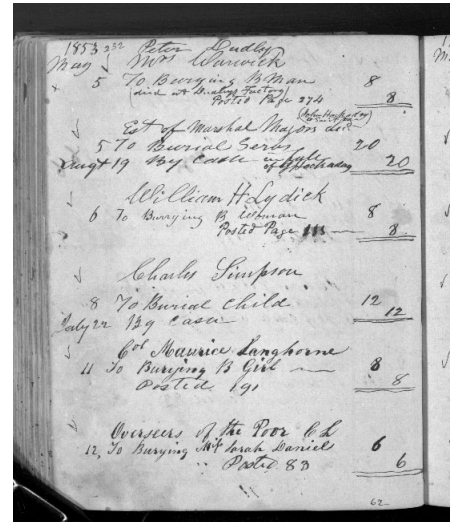 1853 232 Peter Dudly
May Mrs Warwick
5 To Burying B Man 8
(died at Factory)
Posted Page 274 8
Est of Marshal Majors dec
5 To Burial Servs 20
Augt 19 By Cash in full of 20
William H Lydick
6 To Burying B Woman 8
Posted Page 111 8
Charles Simpson
8 To Burial Child 12
July 22 By Cash 12
Col Maurice Langhorne
11 To Burying B Girl 8
Posted 191 8
Overseers of the Poor C L
12, To Burying Mis Sarah Daniels 6
" Posted 83 6
62